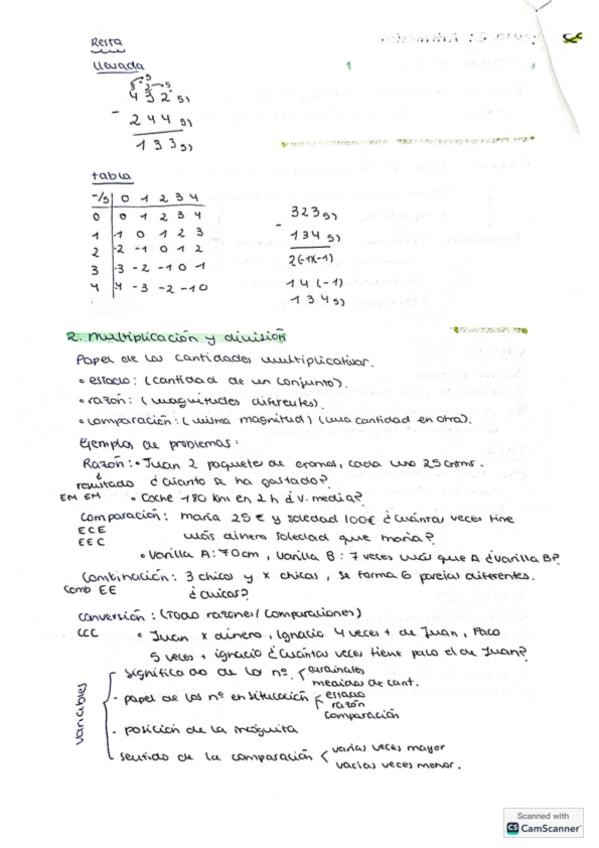 Resta
llevada
4 3 2 5)
- 2 4 4 5)
1 3 3 5)
tabla
-/5 0 1 2 3 4
0 0 1 2 3 4
1 -1 0 1 2 3
2 -2 -1 0 1 2
3 -3 -2 -1 0 1
4 -4 -3 -2 -1 0
323 5)
- 134 5)
2(-1)(-1)
14(-1)
134 5)
2. Multiplicación y división
Papel de las cantidades multiplicativas.
• estado: (cantidad de un conjunto).
• razón: (magnitudes diferentes).
• comparación: (misma magnitud) (una cantidad en otra).
Ejemplos de problemas:
Razón: • Juan 2 paquetes de cromos, cada uno 25 cntms.
resultado ¿cuánto se ha gastado?
EM EM • Coche 180 km en 2 h ¿v. media?
Comparación: maría 25 € y soledad 100€ ¿cuántas veces tiene
ECE más dinero soledad que maría?
EEC • Varilla A: 70cm, Varilla B: 7 veces más que A ¿varilla B?
Combinación: 3 chicos y x chicas, se forma 6 parejas diferentes.
Comb EE ¿chicas?
conversión: (Todo razones/comparaciones)
CCC • Juan x dinero, Ignacio 4 veces + de Juan, Paco
5 veces + ignacio ¿Cuántas veces tiene paco el de Juan?
variables
significado de los nº. cardinales
medidas de cant.
- papel de los nº en situación estado
razón
comparación
- posición de la incógnita
sentido de la comparación varias veces mayor
varias veces menor.
Scanned with
CS CamScanner